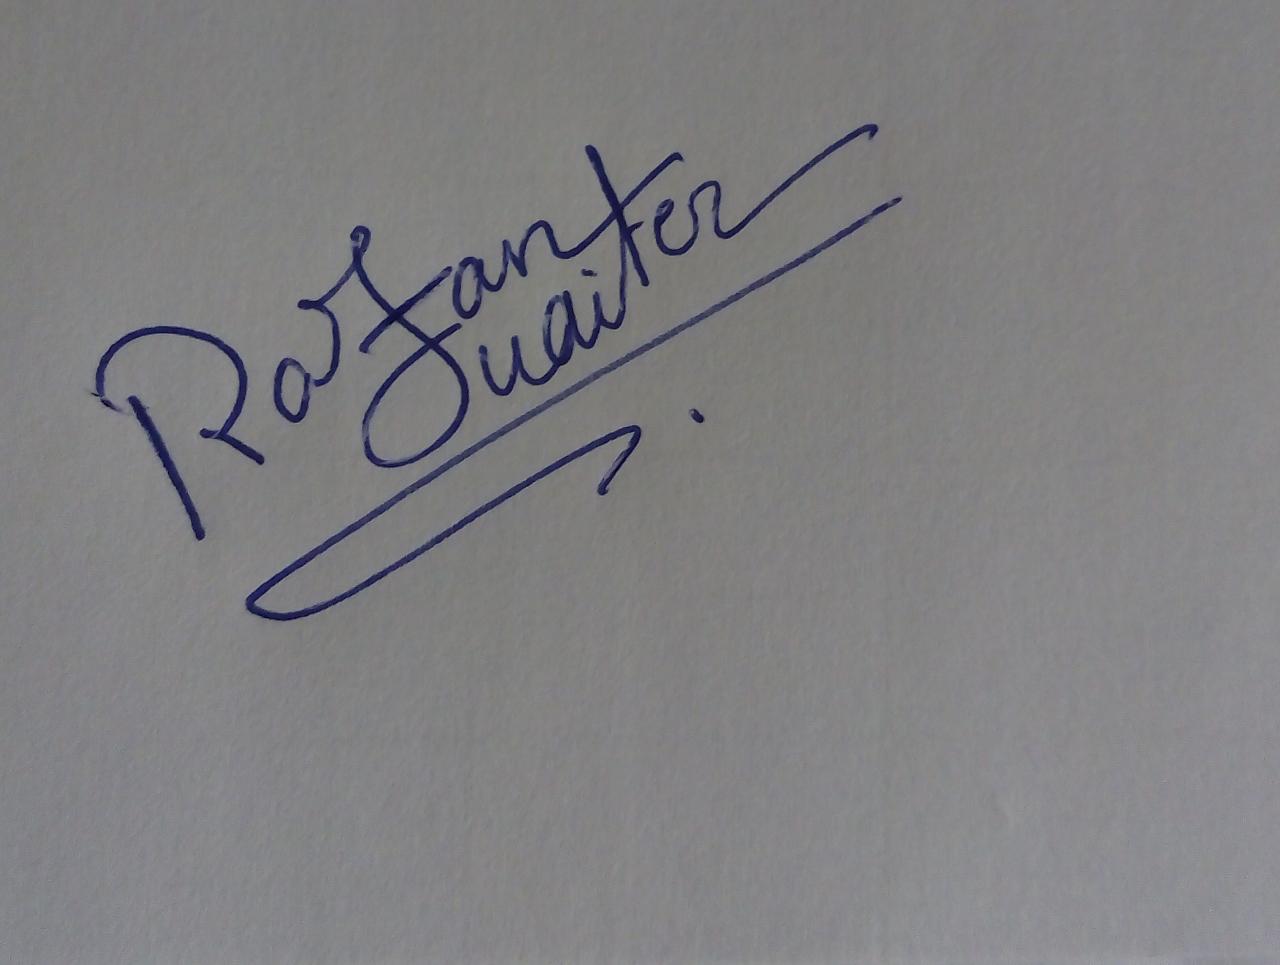 Razan
Juaiter